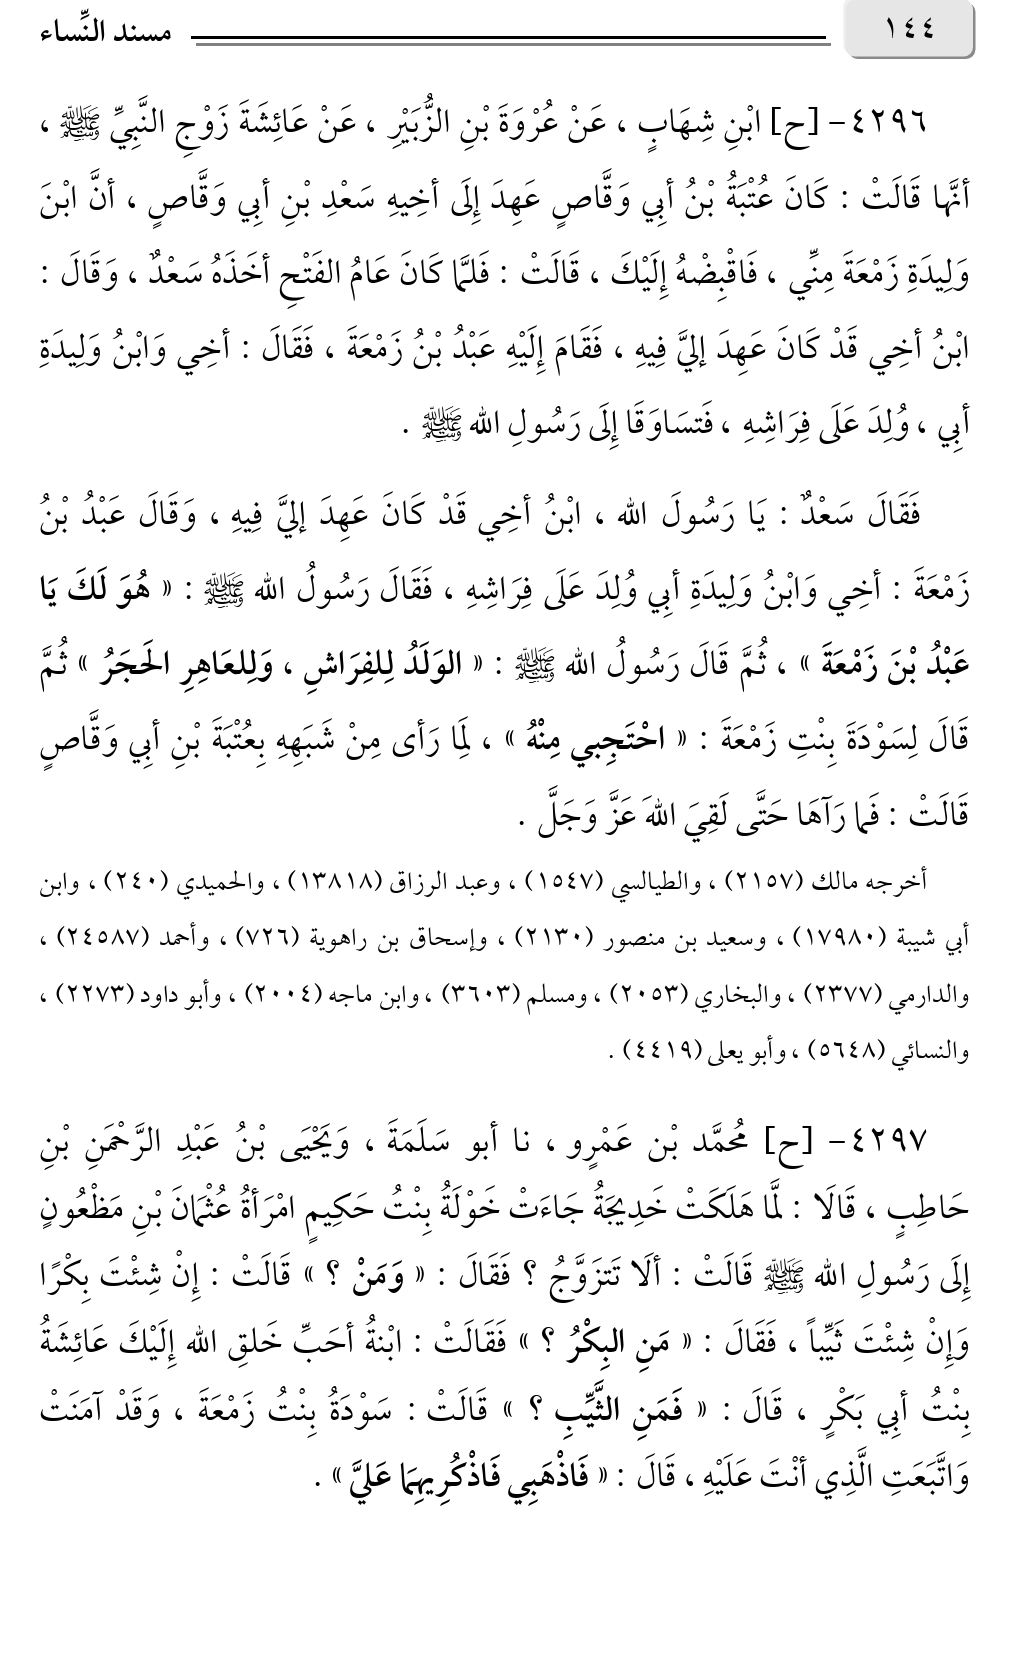 ١٤٤
مسند النِّساء
٤٢٩٦- [ح] ابْنِ شِهَابٍ ، عَنْ عُرْوَةَ بْنِ الزُّبَيْرِ ، عَنْ عَائِشَةَ زَوْجِ النَّبِيِّ ﷺ ،
أنَّها قَالَتْ : كَانَ عُتْبَةُ بْنُ أبِي وَقَّاصٍ عَهِدَ إِلَى أخِيهِ سَعْدِ بْنِ أبِي وَقَّاصٍ ، أنَّ ابْنَ
وَلِيدَةِ زَمْعَةَ مِنِّي ، فَاقْبِضْهُ إِلَيْكَ ، قَالَتْ : فَلمَّا كَانَ عَامُ الفَتْحِ أخَذَهُ سَعْدٌ ، وَقَالَ :
ابْنُ أخِي قَدْ كَانَ عَهِدَ إليَّ فِيهِ ، فَقَامَ إِلَيْهِ عَبْدُ بْنُ زَمْعَةَ ، فَقَالَ : أخِي وَابْنُ وَلِيدَةِ
أبِي ، وُلِدَ عَلَى فِرَاشِهِ ، فَتسَاوَقَا إِلَى رَسُولِ الله ﷺ .
فَقَالَ سَعْدٌ : يَا رَسُولَ الله ، ابْنُ أخِي قَدْ كَانَ عَهِدَ إليَّ فِيهِ ، وَقَالَ عَبْدُ بْنُ
زَمْعَةَ : أخِي وَابْنُ وَلِيدَةِ أبِي وُلِدَ عَلَى فِرَاشِهِ ، فَقَالَ رَسُولُ الله ﷺ : « هُوَ لَكَ يَا
عَبْدُ بْنَ زَمْعَةَ » ، ثُمَّ قَالَ رَسُولُ الله ﷺ : « الوَلَدُ لِلفِرَاشِ ، وَلِلعَاهِرِ الحَجَرُ » ثُمَّ
قَالَ لِسَوْدَةَ بِنْتِ زَمْعَةَ : « احْتَجِبي مِنْهُ » ، لِمَا رَأى مِنْ شَبَهِهِ بِعُتْبَةَ بْنِ أبِي وَقَّاصٍ
قَالَتْ : فَما رَآهَا حَتَّى لَقِيَ اللهَ عَزَّ وَجَلَّ .
أخرجه مالك (٢١٥٧) ، والطيالسي (١٥٤٧) ، وعبد الرزاق (١٣٨١٨) ، والحميدي (٢٤٠) ، وابن
أبي شيبة (١٧٩٨٠) ، وسعيد بن منصور (٢١٣٠) ، وإسحاق بن راهوية (٧٢٦) ، وأحمد (٢٤٥٨٧) ،
والدارمي (٢٣٧٧) ، والبخاري (٢٠٥٣) ، ومسلم (٣٦٠٣) ، وابن ماجه (٢٠٠٤) ، وأبو داود (٢٢٧٣) ،
والنسائي (٥٦٤٨) ، وأبو يعلى (٤٤١٩) .
٤٢٩٧- [ح] مُحمَّد بْن عَمْرٍو ، نا أبو سَلَمَةَ ، وَيَحْيَى بْنُ عَبْدِ الرَّحْمَنِ بْنِ
حَاطِبٍ ، قَالَا : لمَّا هَلَكَتْ خَدِيجَةُ جَاءَتْ خَوْلَةُ بِنْتُ حَكِيمٍ امْرَأةُ عُثْمَانَ بْنِ مَظْعُونٍ
إِلَى رَسُولِ الله ﷺ قَالَتْ : ألَا تَتزَوَّجُ ؟ فَقَالَ : « وَمَنْ ؟ » قَالَتْ : إِنْ شِئْتَ بِكْرًا
وَإِنْ شِئْتَ ثَيِّباً ، فَقَالَ : « مَنِ البِكْرُ ؟ » فَقَالَتْ : ابْنةُ أحَبِّ خَلقِ الله إِلَيْكَ عَائِشَةُ
بِنْتُ أبِي بَكْرٍ ، قَالَ : « فَمَنِ الثَّيِّبِ ؟ » قَالَتْ : سَوْدَةُ بِنْتُ زَمْعَةَ ، وَقَدْ آمَنَتْ
وَاتَّبَعَتِ الَّذِي أنْتَ عَلَيْهِ ، قَالَ : « فَاذْهَبِي فَاذْكُرِيهِمَا عَليَّ » .